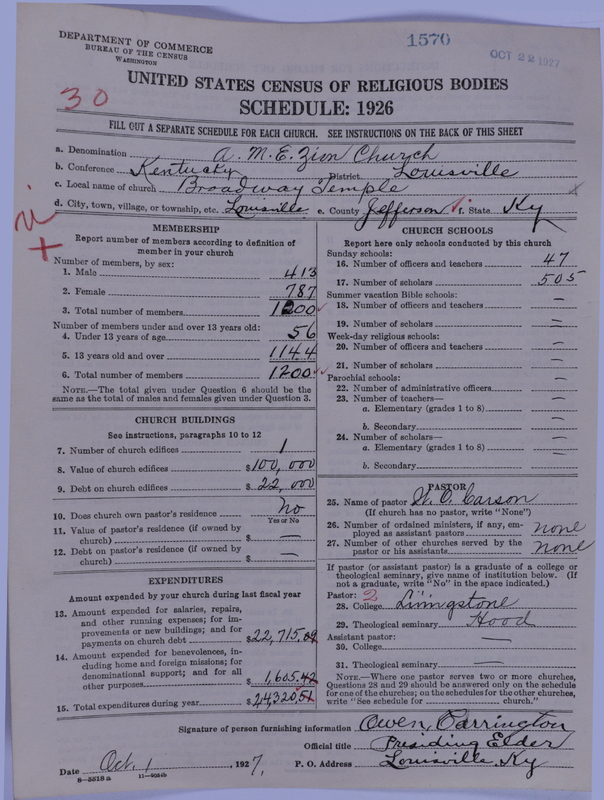 1570
OCT 22 1927
DEPARTMENT OF COMMERCE
BUREAU OF THE CENSUS
WASHINGTON
UNITED STATES CENSUS OF RELIGIOUS BODIES
30
SCHEDULE: 1926
FILL OUT A SEPARATE SCHEDULE FOR EACH CHURCH. SEE INSTRUCTIONS ON THE BACK OF THIS SHEET
a. Denomination A. M. E. Zion Church
b. Conference Kentucky District Louisville
c. Local name of church Broadway Temple
d. City, town, village, or township, etc. Louisville e. County Jefferson f. State Ky
MEMBERSHIP
Report number of members according to definition of
member in your church
Number of members, by sex:
1. Male 413
2. Female 787
3. Total number of members 1200
Number of members under and over 13 years old:
4. Under 13 years of age 56
5. 13 years old and over 1144
6. Total number of members 1200
NOTE.—The total given under Question 6 should be
same as the total of males and females given under Question 3.
CHURCH BUILDINGS
See instructions, paragraphs 10 to 12
7. Number of church edifices 1
8. Value of church edifices $100,000
9. Debt on church edifices $22,000
10. Does church own pastor's residence? No
Yes or No
11. Value of pastor's residence (if owned by
church) $ —
12. Debt on pastor's residence (if owned by
church) $ —
EXPENDITURES
Amount expended by your church during last fiscal year
13. Amount expended for salaries, repairs,
and other running expenses; for im-
provements or new buildings; and for
payments on church debt $22,715.09
14. Amount expended for benevolences, in-
cluding home and foreign missions; for
denominational support; and for all
other purposes $1,605.42
15. Total expenditures during year $24,320.51
CHURCH SCHOOLS
Report here only schools conducted by this church
Sunday schools:
16. Number of officers and teachers 47
17. Number of scholars 505
Summer vacation Bible schools:
18. Number of officers and teachers —
19. Number of scholars —
Week-day religious schools:
20. Number of officers and teachers —
21. Number of scholars —
Parochial schools:
22. Number of administrative officers —
23. Number of teachers—
a. Elementary (grades 1 to 8) —
b. Secondary —
24. Number of scholars—
a. Elementary (grades 1 to 8) —
b. Secondary —
PASTOR
25. Name of pastor W. O. Carson
(If church has no pastor, write "None")
26. Number of ordained ministers, if any, em-
ployed as assistant pastors none
27. Number of other churches served by the
pastor or his assistants none
If pastor (or assistant pastor) is a graduate of a college or
theological seminary, give name of institution below. (If
not a graduate, write "No" in the space indicated.)
Pastor: 2
28. College Livingstone
29. Theological seminary Hood
Assistant pastor:
30. College —
31. Theological seminary —
NOTE.—Where one pastor serves two or more churches,
Questions 28 and 29 should be answered only on the schedule
for one of the churches; on the schedules for the other churches,
write "See schedule for church."
Signature of person furnishing information Owen Carrington
Official title Presiding Elder
Date Oct. 1, 1927. P. O. Address Louisville, Ky